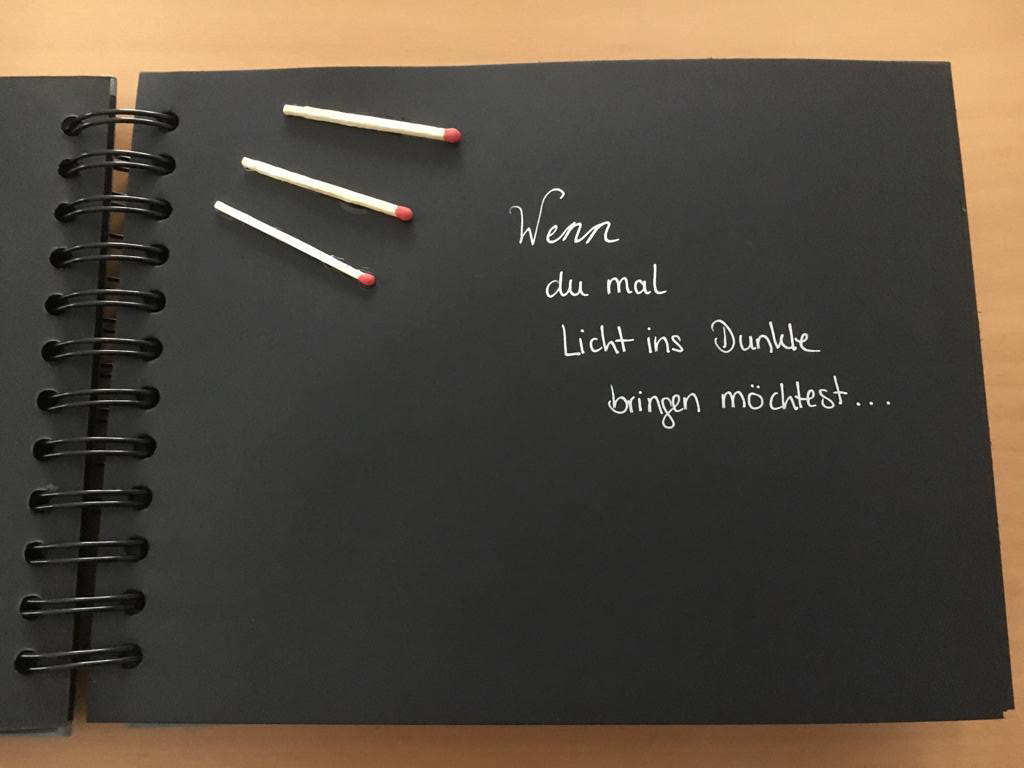 Wenn
du mal
Licht ins Dunkle
bringen möchtest...